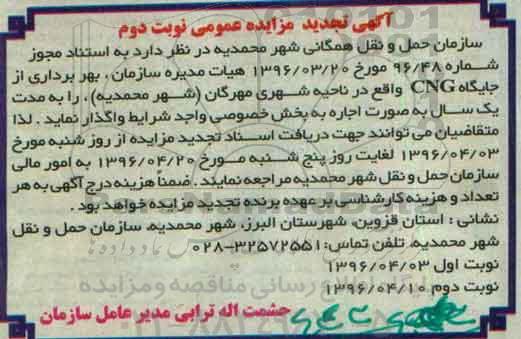 آگهی تجدید مزایده عمومی نوبت دوم
سازمان حمل و نقل همگانی شهر محمدیه در نظر دارد به استناد مجوز
شماره ۹۶/۴۸ مورخ ۱۳۹۶/۰۳/۲۰ هیات مدیره سازمان، بهر برداری از
جایگاه CNG واقع در ناحیه شهری مهرگان (شهر محمدیه)، را به مدت
یک سال به صورت اجاره به بخش خصوصی واجد شرایط واگذار نماید. لذا
متقاضیان می توانند جهت دریافت اسناد تجدید مزایده از روز شنبه مورخ
۱۳۹۶/۰۴/۰۳ لغایت روز پنج شنبه مورخ ۱۳۹۶/۰۴/۲۰ به امور مالی
سازمان حمل و نقل شهر محمدیه مراجعه نمایند. ضمناً هزینه درج آگهی به هر
تعداد و هزینه کارشناسی بر عهده برنده تجدید مزایده خواهد بود.
نشانی: استان قزوین، شهرستان البرز، شهر محمدیه، سازمان حمل و نقل
شهر محمدیه، تلفن تماس: ۳۲۵۷۲۵۵۱-۰۲۸
نوبت اول ۱۳۹۶/۰۴/۰۳
نوبت دوم ۱۳۹۶/۰۴/۱۰
حشمت اله ترابی مدیر عامل سازمان